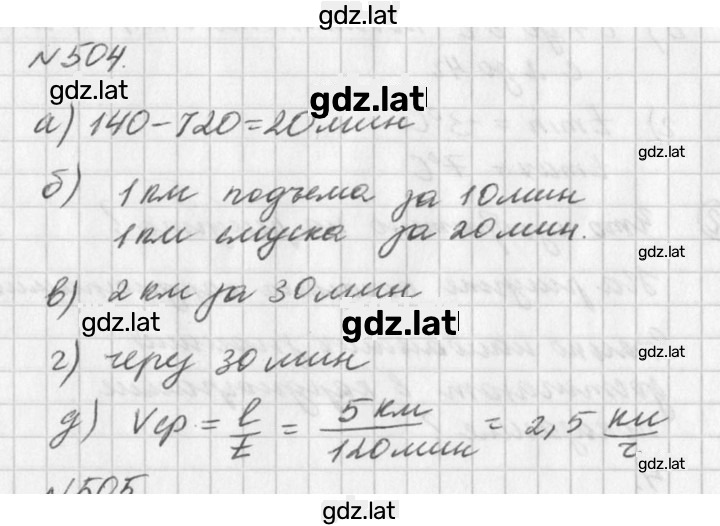 gdz.lat
N 504.
gdz.lat
gdz.lat
а) 140-120=20мин
gdz.lat
б) 1 км подъема за 10мин
1км спуска за 20мин.
gdz.lat
в) 2 км за 30мин
gdz.lat
gdz.lat
г) через 30мин
gdz.lat
д) Vср.= l/t = 5 км/120мин = 2,5 км/ч
gdz.lat
N505
gdz.lat